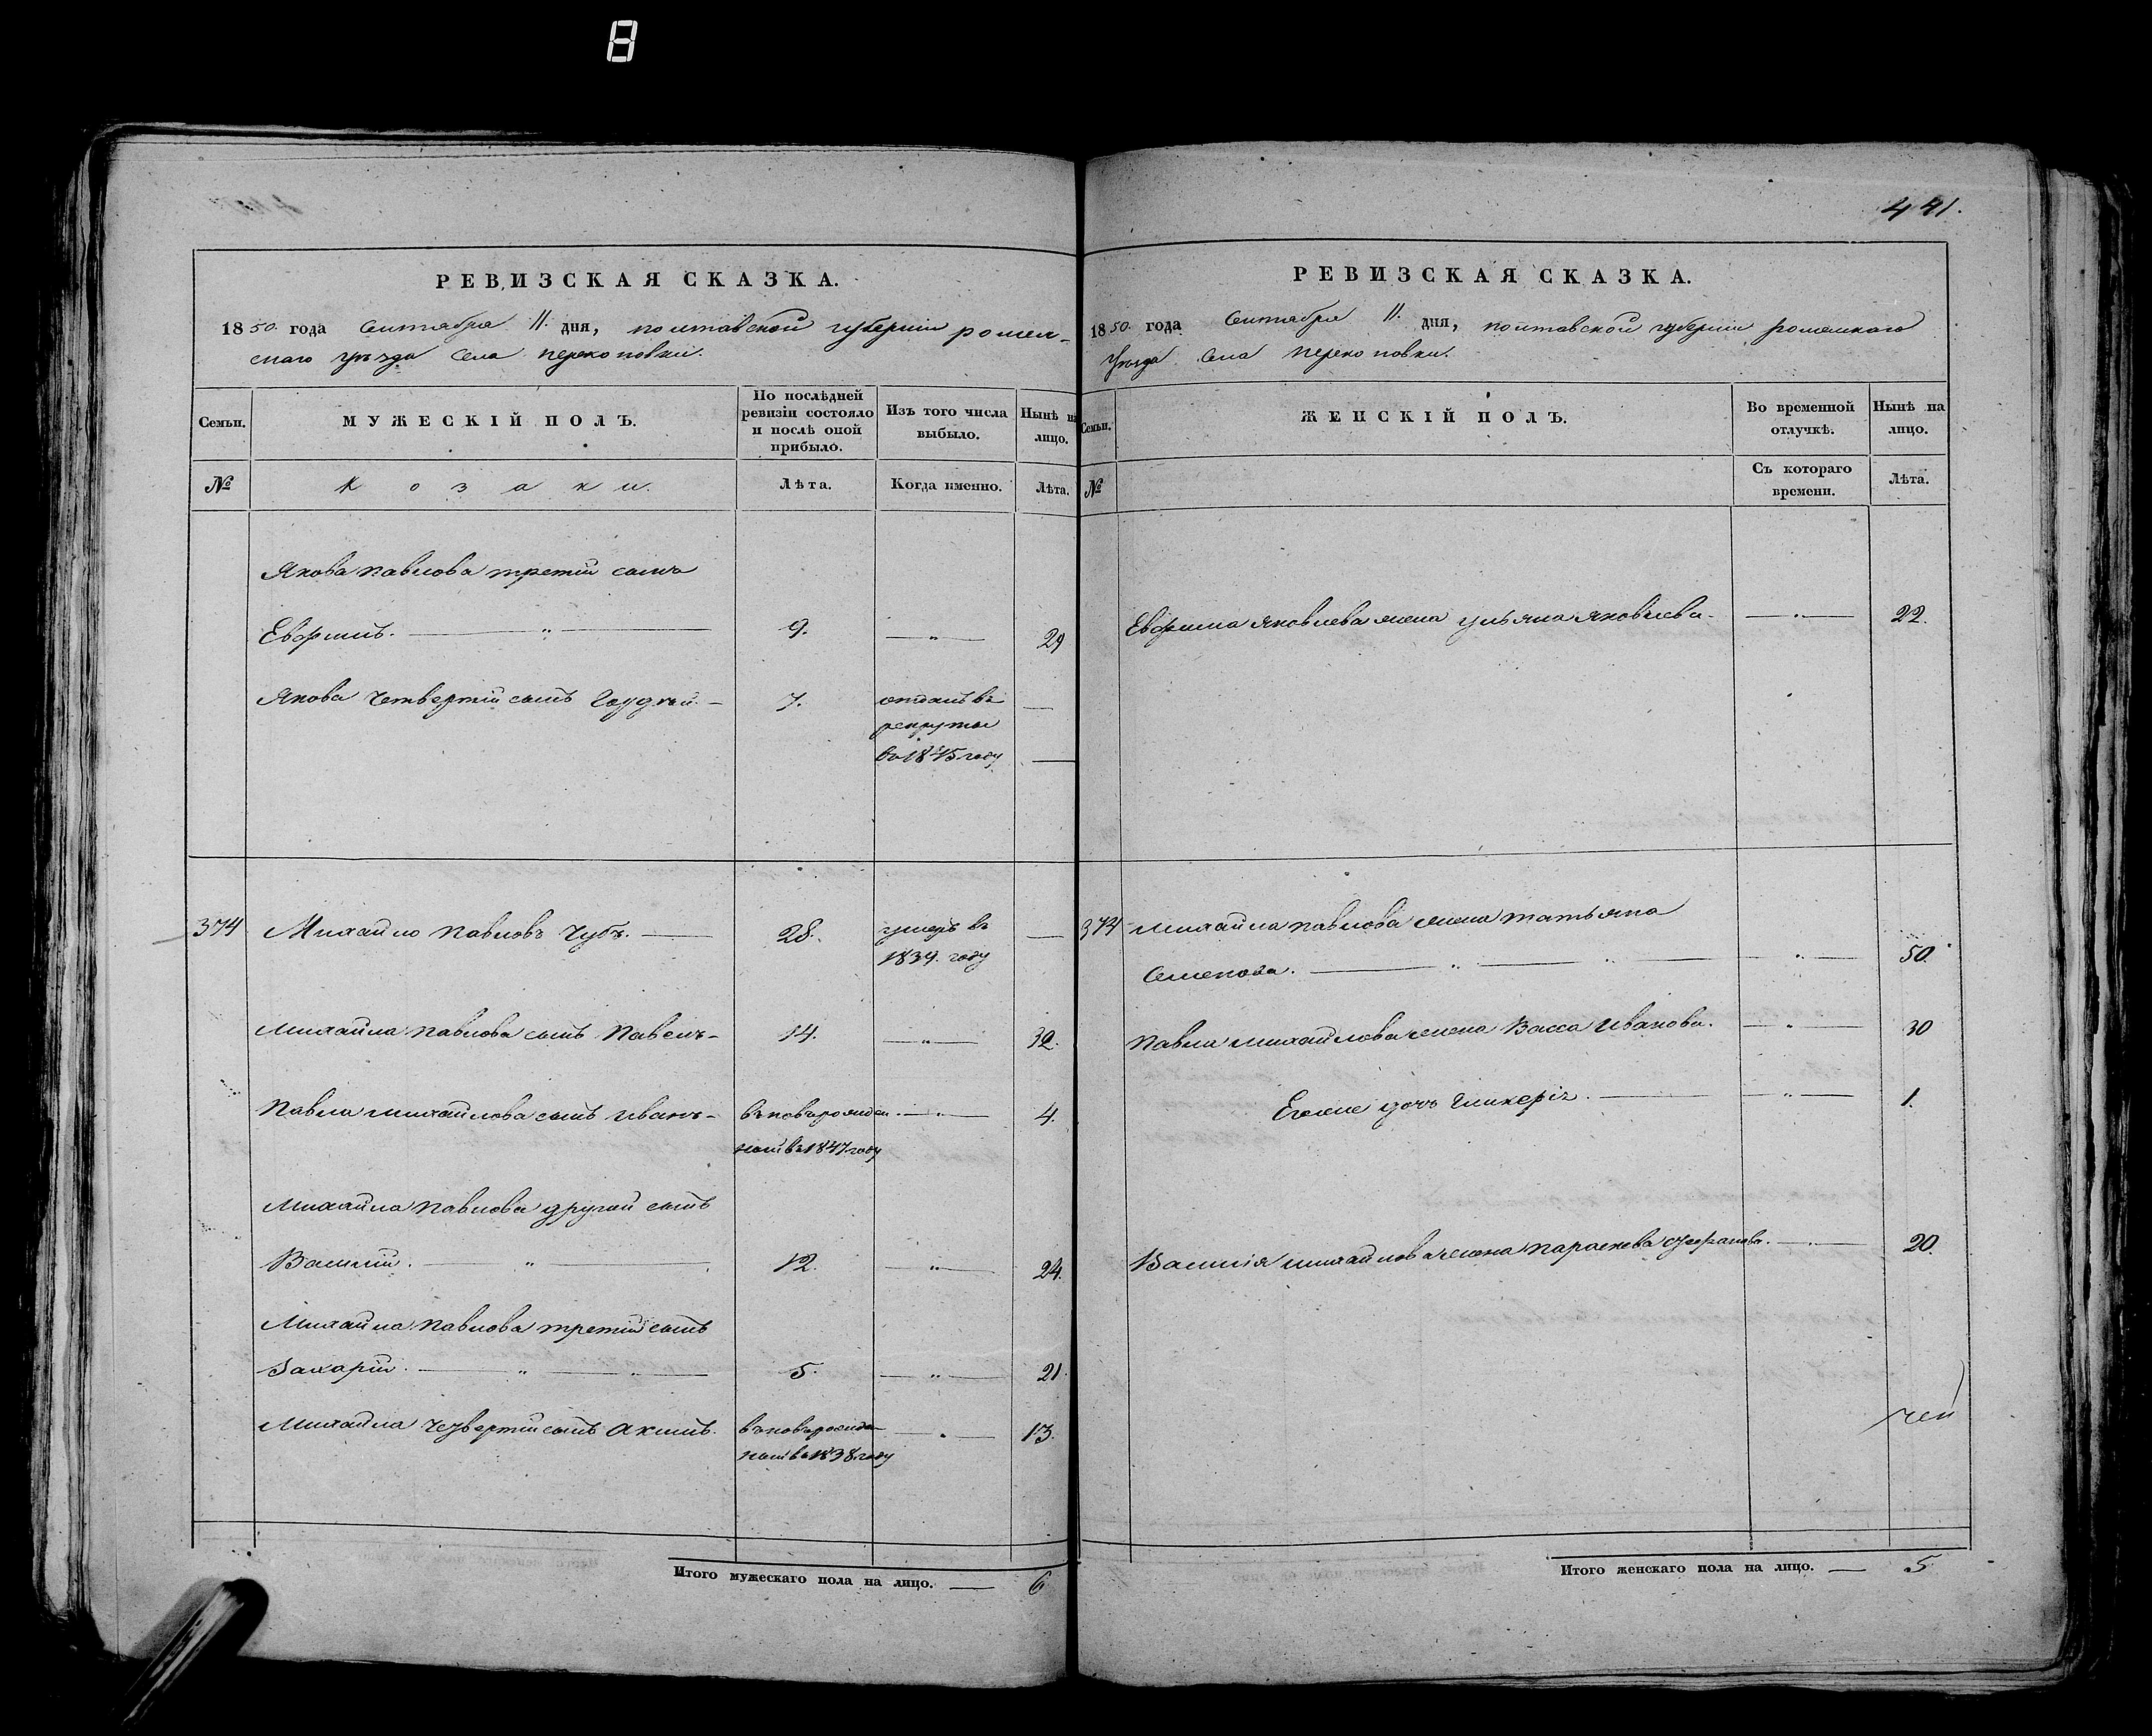 8
441.
РЕВИЗСКАЯ СКАЗКА.
1850. года Сентября 11. дня, полтавской губернии ромен-
скаго уѣзда села перекоповки.
Семьи.
МУЖЕСКІЙ ПОЛЪ.
По послѣдней ревизіи состояло и послѣ оной прибыло.
Изъ того числа выбыло.
Нынѣ на лицо.
№
Козаки.
Лѣта.
Когда именно.
Лѣта.
Якова павлова третій сынъ
Евфимъ. — " — 9. — " — 29
Якова четвертій сынъ — 7. отданъ въ —
рекруты
въ 1845 году —
374 Михайло Павловъ Чубъ. — 28. умеръ въ —
1839. году
Михайла Павлова сынъ Павелъ - 14. — " — 32.
Павла михайлова сынъ иванъ - въновьрожден. — " — 4.
ный въ 1847 году
Михайла Павлова другий сынъ
Василій. — " — 12. — " — 24.
Михайла Павлова третій сынъ
Захарій. — " — " — 5. — " — 21.
Михайла четвертій сынъ Акимъ. въновьрожден — " — 13.
ный въ 1838 году
Итого мужескаго пола на лицо. — 6
РЕВИЗСКАЯ СКАЗКА.
1850. года Сентября 11. дня, полтавской губерніи роменскаго
уѣзда села перекоповки.
Семьи.
ЖЕНСКІЙ ПОЛЪ.
Во временной отлучкѣ.
Нынѣ на лицо.
№
Съ котораго времени.
Лѣта.
Евфима яковлева жена ульяна яковлева. — " — 22.
374 Михайла павлова жена татьяна
Семенова. — " — " — " — 50.
Павла михайлова жена Васса Иванова. — " — 30
Егоже дочь Гликерія. — " — 1.
Василія михайлова жена параскева — " — 20.
Итого женскаго пола на лицо. — 5.